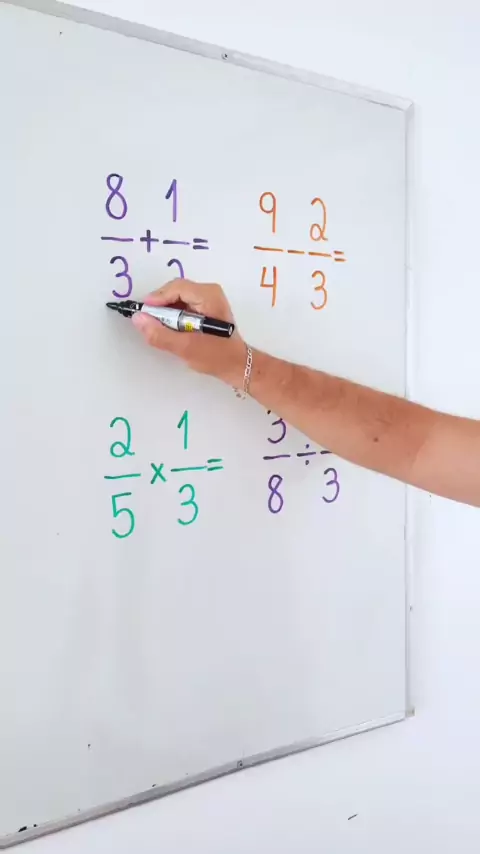 8/3 + 1/2 =
9/4 - 2/3 =
2/5 x 1/3 =
3/8 ÷ /3